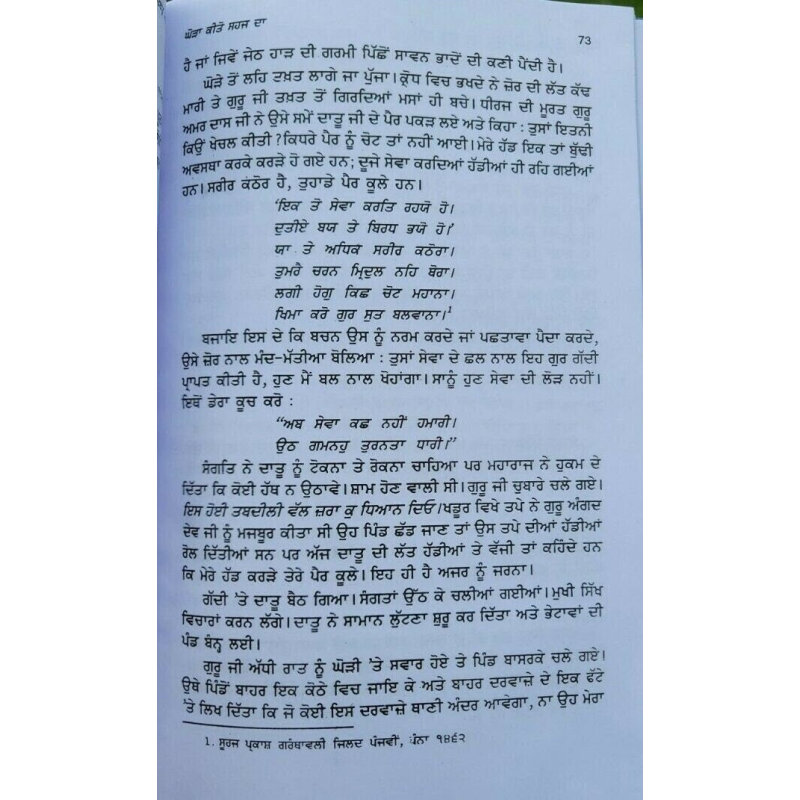 ਘੋੜਾ ਕੀਤੋ ਸਹਜ ਦਾ
73
ਹੈ ਜਾਂ ਜਿਵੇਂ ਜੇਠ ਹਾੜ ਦੀ ਗਰਮੀ ਪਿੱਛੋਂ ਸਾਵਨ ਭਾਦੋਂ ਦੀ ਕਣੀ ਪੈਂਦੀ ਹੈ।
ਘੋੜੇ ਤੋਂ ਲਹਿ ਤਖ਼ਤ ਲਾਗੇ ਜਾ ਪੁੱਜਾ। ਕ੍ਰੋਧ ਵਿਚ ਭਖਦੇ ਨੇ ਜ਼ੋਰ ਦੀ ਲੱਤ ਕੱਢ
ਮਾਰੀ ਤੇ ਗੁਰੂ ਜੀ ਤਖ਼ਤ ਤੋਂ ਗਿਰਦਿਆਂ ਮਸਾਂ ਹੀ ਬਚੇ। ਧੀਰਜ ਦੀ ਮੂਰਤ ਗੁਰੂ
ਅਮਰ ਦਾਸ ਜੀ ਨੇ ਉਸੇ ਸਮੇਂ ਦਾਤੂ ਜੀ ਦੇ ਪੈਰ ਪਕੜ ਲਏ ਅਤੇ ਕਿਹਾ : ਤੁਸਾਂ ਇਤਨੀ
ਕਿਉਂ ਖੇਚਲ ਕੀਤੀ ? ਕਿਧਰੇ ਪੈਰ ਨੂੰ ਚੋਟ ਤਾਂ ਨਹੀਂ ਆਈ। ਮੇਰੇ ਹੱਡ ਇਕ ਤਾਂ ਬੁੱਢੀ
ਅਵਸਥਾ ਕਰਕੇ ਕਰੜੇ ਹੋ ਗਏ ਹਨ; ਦੂਜੇ ਸੇਵਾ ਕਰਦਿਆਂ ਹੱਡੀਆਂ ਹੀ ਰਹਿ ਗਈਆਂ
ਹਨ। ਸਰੀਰ ਕਠੋਰ ਹੈ, ਤੁਹਾਡੇ ਪੈਰ ਕੂਲੇ ਹਨ।
'ਇਕ ਤੋ ਸੇਵਾ ਕਰਤਿ ਰਹਯੋ ਹੋ।
ਦੁਤੀਏ ਬਯ ਤੇ ਬਿਰਧ ਭਯੋ ਹੋ।'
ਯਾ ਤੇ ਅਧਿਕ ਸਰੀਰ ਕਠੋਰਾ।
ਤੁਮਰੈ ਚਰਨ ਮ੍ਰਿਦੁਲ ਨਹਿ ਥੋਰਾ।
ਲਗੀ ਹੋਗੁ ਕਿਛ ਚੋਟ ਮਹਾਨਾ।
ਖਿਮਾ ਕਰੋ ਗੁਰ ਸੁਤ ਬਲਵਾਨਾ।¹
ਬਜਾਇ ਇਸ ਦੇ ਕਿ ਬਚਨ ਉਸ ਨੂੰ ਨਰਮ ਕਰਦੇ ਜਾਂ ਪਛਤਾਵਾ ਪੈਦਾ ਕਰਦੇ,
ਉਸੇ ਜ਼ੋਰ ਨਾਲ ਮੰਦ-ਮੱਤੀਆ ਬੋਲਿਆ : ਤੁਸਾਂ ਸੇਵਾ ਦੇ ਛਲ ਨਾਲ ਇਹ ਗੁਰ ਗੱਦੀ
ਪ੍ਰਾਪਤ ਕੀਤੀ ਹੈ, ਹੁਣ ਮੈਂ ਬਲ ਨਾਲ ਖੋਹਾਂਗਾ। ਸਾਨੂੰ ਹੁਣ ਸੇਵਾ ਦੀ ਲੋੜ ਨਹੀਂ।
ਇਥੋਂ ਡੇਰਾ ਕੂਚ ਕਰੋ :
"ਅਬ ਸੇਵਾ ਕਛ ਨਹੀਂ ਹਮਾਰੀ।
ਉਠ ਗਮਨਹੁ ਤੁਰਨਤਾ ਧਾਰੀ।"
ਸੰਗਤਿ ਨੇ ਦਾਤੂ ਨੂੰ ਟੋਕਨਾ ਤੇ ਰੋਕਨਾ ਚਾਹਿਆ ਪਰ ਮਹਾਰਾਜ ਨੇ ਹੁਕਮ ਦੇ
ਦਿੱਤਾ ਕਿ ਕੋਈ ਹੱਥ ਨ ਉਠਾਵੇ। ਸ਼ਾਮ ਹੋਣ ਵਾਲੀ ਸੀ। ਗੁਰੂ ਜੀ ਚੁਬਾਰੇ ਚਲੇ ਗਏ।
ਇਸ ਹੋਈ ਤਬਦੀਲੀ ਵੱਲ ਜ਼ਰਾ ਕੁ ਧਿਆਨ ਦਿਓ। ਖਡੂਰ ਵਿਖੇ ਤਪੇ ਨੇ ਗੁਰੂ ਅੰਗਦ
ਦੇਵ ਜੀ ਨੂੰ ਮਜਬੂਰ ਕੀਤਾ ਸੀ ਉਹ ਪਿੰਡ ਛੱਡ ਜਾਣ ਤਾਂ ਉਸ ਤਪੇ ਦੀਆਂ ਹੱਡੀਆਂ
ਰੋਲ ਦਿੱਤੀਆਂ ਸਨ ਪਰ ਅੱਜ ਦਾਤੂ ਦੀ ਲੱਤ ਹੱਡੀਆਂ ਤੇ ਵੱਜੀ ਤਾਂ ਕਹਿੰਦੇ ਹਨ
ਕਿ ਮੇਰੇ ਹੱਡ ਕਰੜੇ ਤੇਰੇ ਪੈਰ ਕੂਲੇ। ਇਹ ਹੀ ਹੈ ਅਜਰ ਨੂੰ ਜਰਨਾ।
ਗੱਦੀ 'ਤੇ ਦਾਤੂ ਬੈਠ ਗਿਆ। ਸੰਗਤਾਂ ਉੱਠ ਕੇ ਚਲੀਆਂ ਗਈਆਂ। ਮੁਖੀ ਸਿੱਖ
ਵਿਚਾਰਾਂ ਕਰਨ ਲੱਗੇ। ਦਾਤੂ ਨੇ ਸਾਮਾਨ ਲੁੱਟਣਾ ਸ਼ੁਰੂ ਕਰ ਦਿੱਤਾ ਅਤੇ ਭੇਟਾਵਾਂ ਦੀ
ਪੰਡ ਬੰਨ੍ਹ ਲਈ।
ਗੁਰੂ ਜੀ ਅੱਧੀ ਰਾਤ ਨੂੰ ਘੋੜੀ 'ਤੇ ਸਵਾਰ ਹੋਏ ਤੇ ਪਿੰਡ ਬਾਸਰਕੇ ਚਲੇ ਗਏ।
ਉਥੇ ਪਿੰਡੋਂ ਬਾਹਰ ਇਕ ਕੋਠੇ ਵਿਚ ਜਾਇ ਕੇ ਅਤੇ ਬਾਹਰ ਦਰਵਾਜ਼ੇ ਦੇ ਇਕ ਫੱਟੇ
'ਤੇ ਲਿਖ ਦਿੱਤਾ ਕਿ ਜੋ ਕੋਈ ਇਸ ਦਰਵਾਜ਼ੇ ਥਾਣੀ ਅੰਦਰ ਆਵੇਗਾ, ਨਾ ਉਹ ਮੇਰਾ
1. ਸੂਰਜ ਪ੍ਰਕਾਸ਼ ਗਰੰਥਾਵਲੀ ਜਿਲਦ ਪੰਜਵੀਂ, ਪੰਨਾ ੧੪੬੨